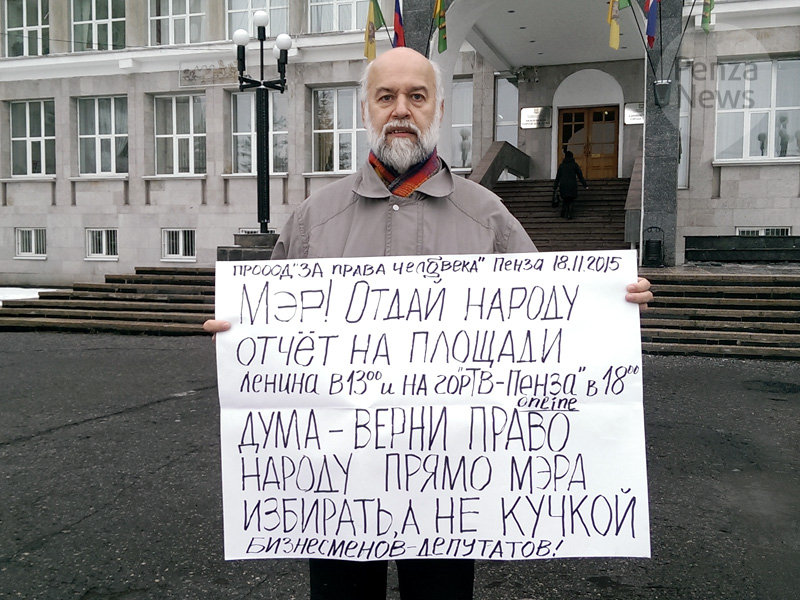 Penza
News
ПРООД "ЗА ПРАВА ЧЕЛОВЕКА" ПЕНЗА 18.11.2015
МЭР! ОТДАЙ НАРОДУ
ОТЧЁТ НА ПЛОЩАДИ
ЛЕНИНА В 13⁰⁰ И НА ГОРТВ-ПЕНЗА" В 18⁰⁰
online
ДУМА – ВЕРНИ ПРАВО
НАРОДУ ПРЯМО МЭРА
ИЗБИРАТЬ, А НЕ КУЧКОЙ
БИЗНЕСМЕНОВ-ДЕПУТАТОВ!